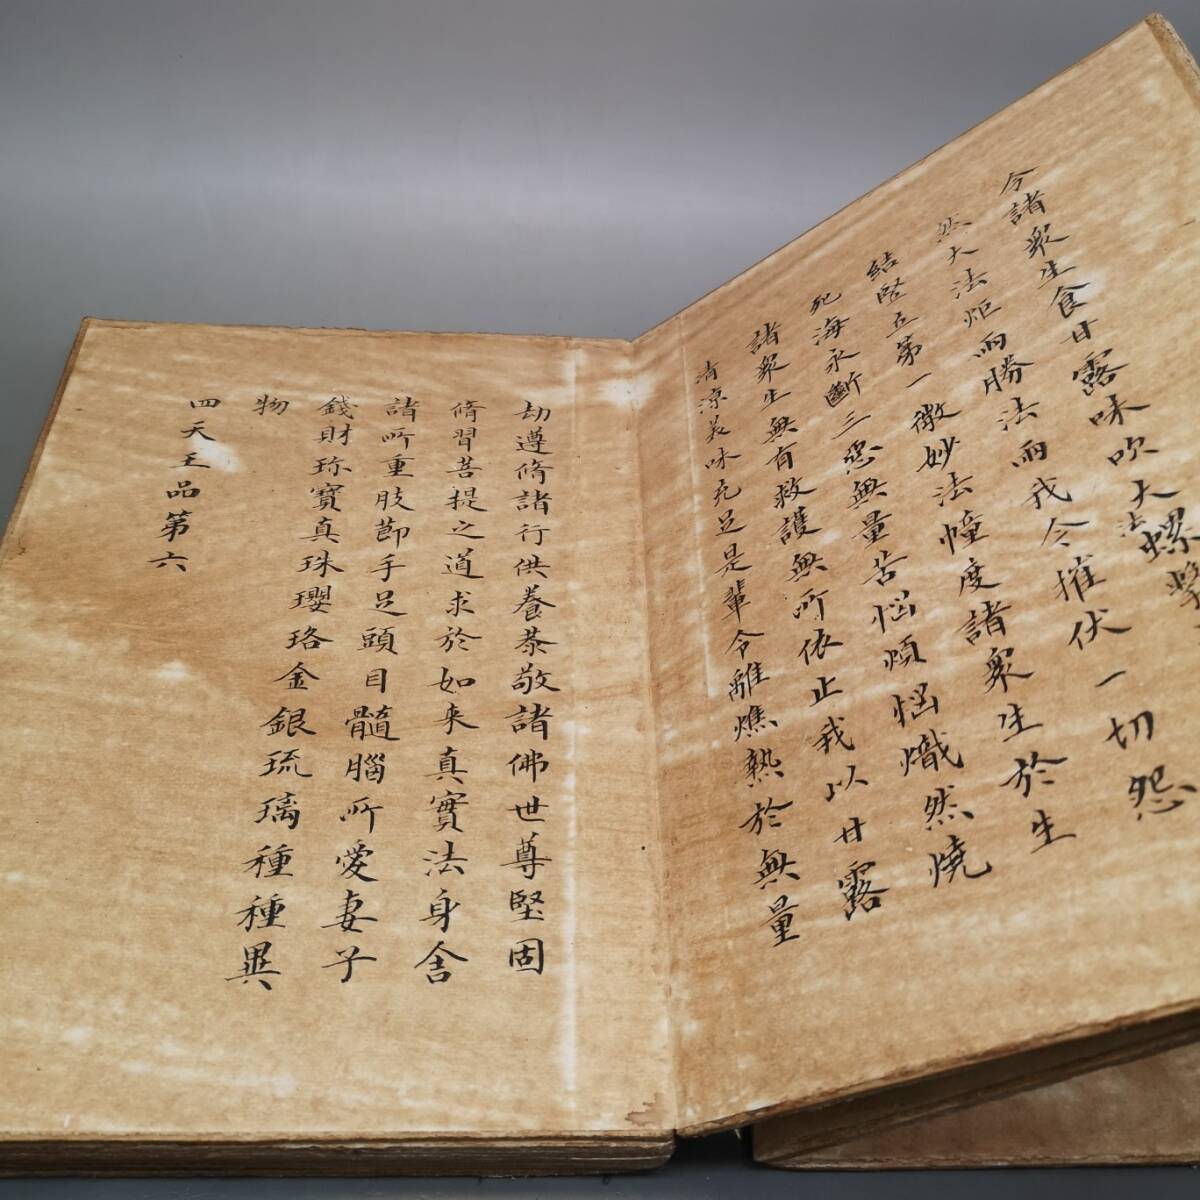 令諸衆生食甘露味吹大法螺擊
然大法炬雨勝法雨我今摧伏一切怨
結竪立第一微妙法幢度諸衆生於生
死海永斷三惡無量苦惱煩惱熾然燒
諸衆生無有救護無所依止我以甘露
清涼美味充足是輩令離燋熱於無量
劫遵脩諸行供養恭敬諸佛世尊堅固
脩習菩提之道求於如来真實法身舍
諸所重肢節手足頭目髓腦所愛妻子
錢財珎寶真珠瓔珞金銀琉璃種種異
物
四天王品第六